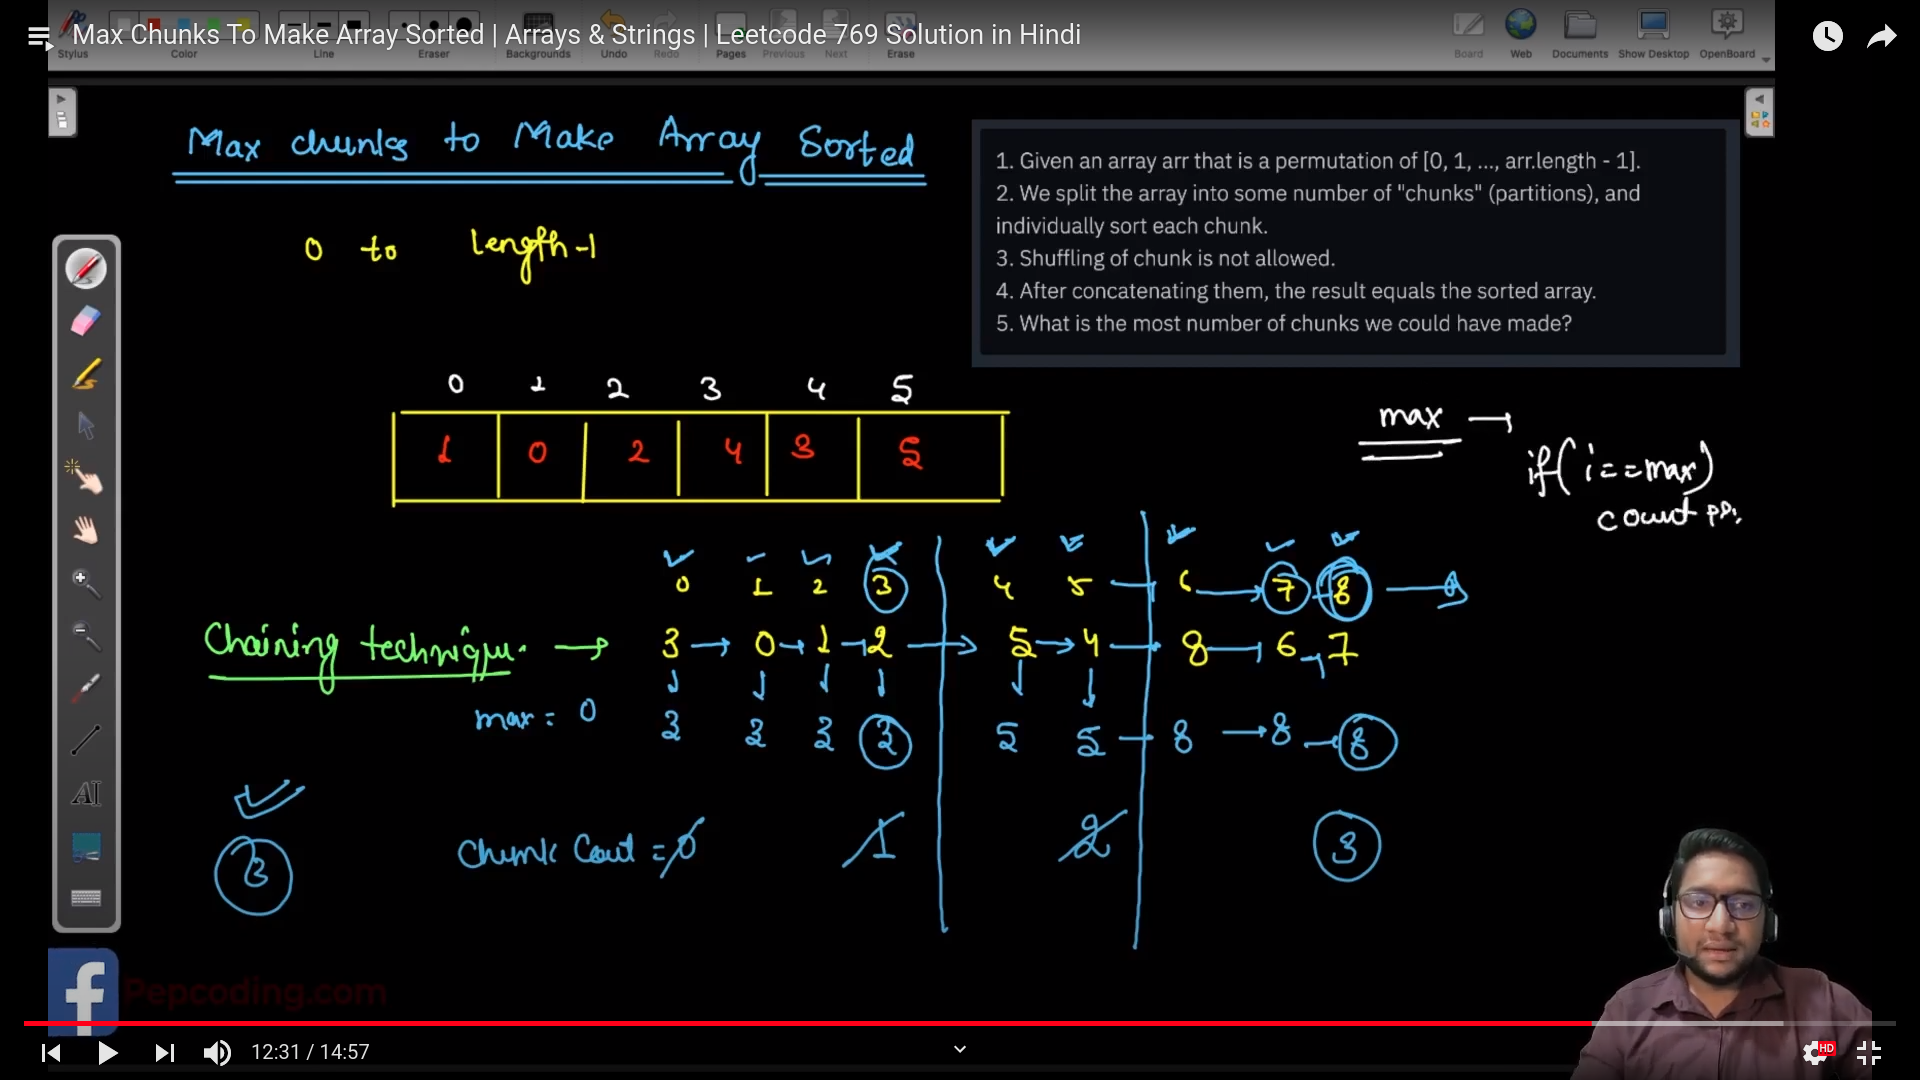 Max Chunks To Make Array Sorted | Arrays & Strings | Leetcode 769 Solution in Hindi
Stylus Color Line Eraser Backgrounds Undo Redo Pages Previous Next Erase Board Web Documents Show Desktop OpenBoard
Max chunks to Make Array Sorted
1. Given an array arr that is a permutation of [0, 1, ..., arr.length - 1].
2. We split the array into some number of "chunks" (partitions), and
individually sort each chunk.
3. Shuffling of chunk is not allowed.
4. After concatenating them, the result equals the sorted array.
5. What is the most number of chunks we could have made?
0 to length-1
0 1 2 3 4 5
1 0 2 4 3 5
max
if(i==max)
count
0 1 2 3 4 5 6 7 8
Chaining technique. 3 0 1 2 5 4 8 6 7
max = 0 3 3 3 3 5 5 8 8 8
Chunk Cout = 0 1 2 3
3
AI
f Pepcoding.com
12:31 / 14:57
HD